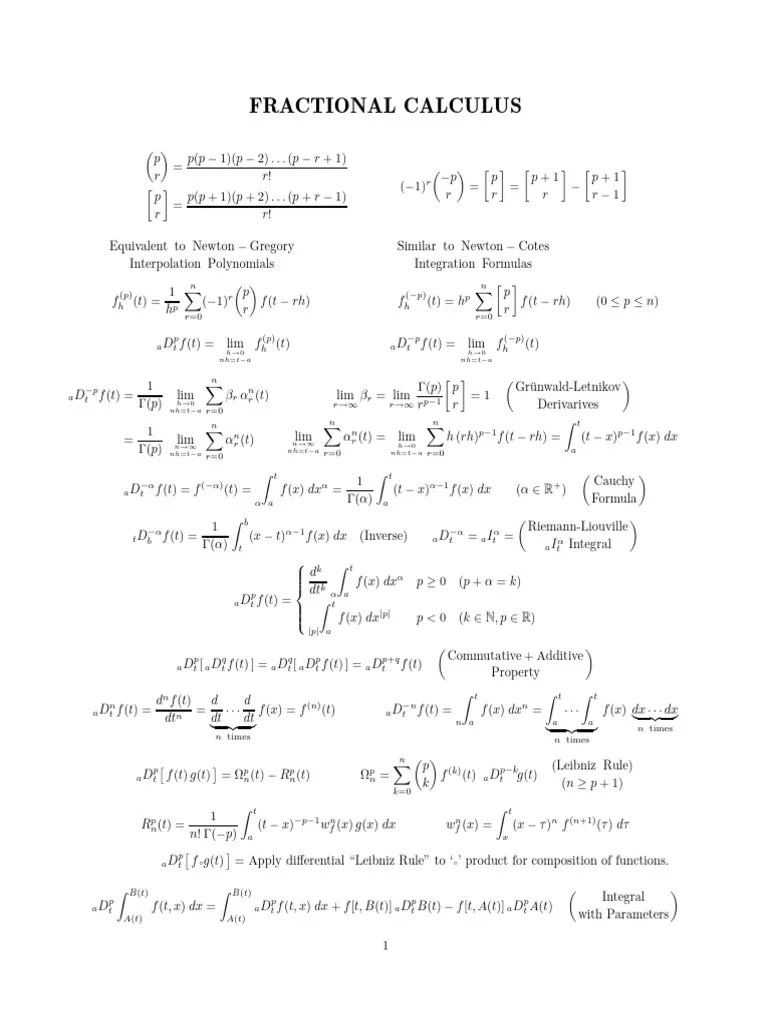 FRACTIONAL CALCULUS
(p r) = p(p − 1)(p − 2) . . . (p − r + 1) / r!
[p r] = p(p + 1)(p + 2) . . . (p + r − 1) / r!
(−1)^r (−p r) = [p r] = [p + 1 r] − [p + 1 r − 1]
Equivalent to Newton − Gregory
Interpolation Polynomials
Similar to Newton − Cotes
Integration Formulas
f_h^(p)(t) = 1/h^p ∑_{r=0}^{n} (−1)^r (p r) f(t − rh)
f_h^(−p)(t) = h^p ∑_{r=0}^{n} [p r] f(t − rh) (0 ≤ p ≤ n)
_aD_t^p f(t) = lim_{h→0, nh=t−a} f_h^(p)(t)
_aD_t^−p f(t) = lim_{h→0, nh=t−a} f_h^(−p)(t)
_aD_t^−p f(t) = 1/Γ(p) lim_{h→0, nh=t−a} ∑_{r=0}^{n} β_r α_r^n(t)
lim_{r→∞} β_r = lim_{r→∞} Γ(p)/r^{p−1} [p r] = 1 (Grünwald-Letnikov Derivarives)
= 1/Γ(p) lim_{n→∞, nh=t−a} ∑_{r=0}^{n} α_r^n(t)
lim_{n→∞, nh=t−a} ∑_{r=0}^{n} α_r^n(t) = lim_{h→0, nh=t−a} ∑_{r=0}^{n} h (rh)^{p−1} f(t − rh) = ∫_a^t (t − x)^{p−1} f(x) dx
_aD_t^−α f(t) = f^(−α)(t) = _α∫_a^t f(x) dx^α = 1/Γ(α) ∫_a^t (t − x)^{α−1} f(x) dx (α ∈ ℝ⁺) (Cauchy Formula)
_tD_b^−α f(t) = 1/Γ(α) ∫_t^b (x − t)^{α−1} f(x) dx (Inverse) _aD_t^−α = _aI_t^α = (Riemann-Liouville _aI_t^α Integral)
_aD_t^p f(t) = { d^k/dt^k _α∫_a^t f(x) dx^α p ≥ 0 (p + α = k)
_|p|∫_a^t f(x) dx^|p| p < 0 (k ∈ ℕ, p ∈ ℝ)
_aD_t^p [ _aD_t^q f(t) ] = _aD_t^q [ _aD_t^p f(t) ] = _aD_t^{p+q} f(t) (Commutative + Additive Property)
_aD_t^n f(t) = d^n f(t)/dt^n = d/dt · · · d/dt (n times) f(x) = f^(n)(t)
_aD_t^−n f(t) = _n∫_a^t f(x) dx^n = ∫_a^t · · · ∫_a^t (n times) f(x) dx · · · dx (n times)
_aD_t^p [ f(t) g(t) ] = Ω_n^p(t) − R_n^p(t)
Ω_n^p = ∑_{k=0}^{n} (p k) f^(k)(t) _aD_t^{p−k} g(t) (Leibniz Rule) (n ≥ p + 1)
R_n^p(t) = 1/(n! Γ(−p)) ∫_a^t (t − x)^{−p−1} w_f^n(x) g(x) dx
w_f^n(x) = ∫_x^t (x − τ)^n f^(n+1)(τ) dτ
_aD_t^p [ f∘g(t) ] = Apply differential “Leibniz Rule” to ‘∘’ product for composition of functions.
_aD_t^p ∫_{A(t)}^{B(t)} f(t, x) dx = ∫_{A(t)}^{B(t)} _aD_t^p f(t, x) dx + f[t, B(t)] _aD_t^p B(t) − f[t, A(t)] _aD_t^p A(t) (Integral with Parameters)
1